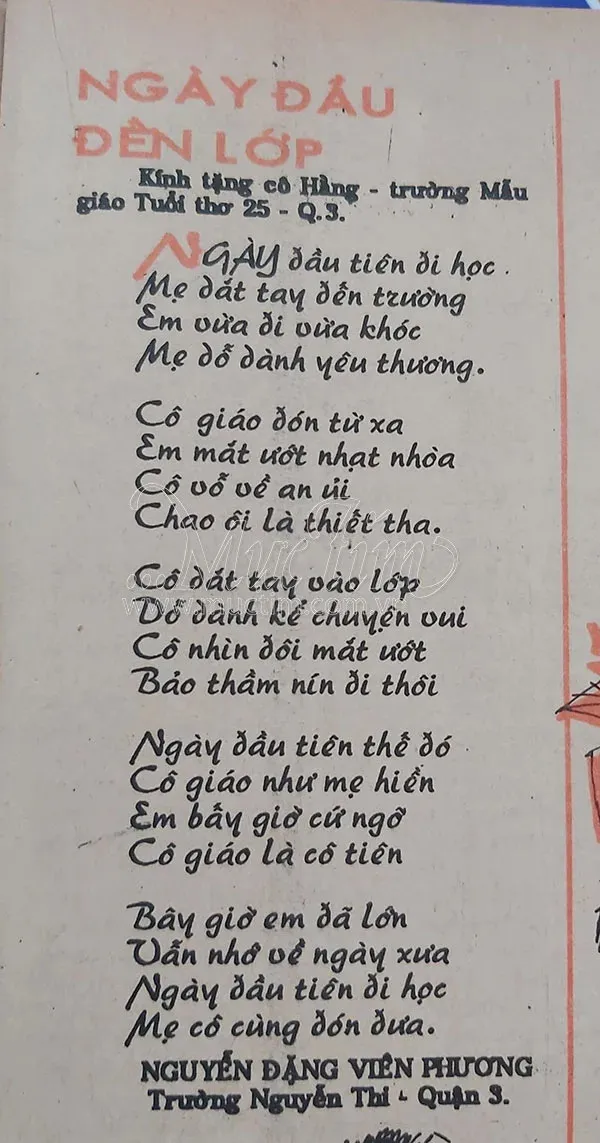 NGÀY ĐẦU
ĐẾN LỚP
Kính tặng cô Hằng - trường Mẫu
giáo Tuổi thơ 25 - Q.3.
NGÀY đầu tiên đi học.
Mẹ dắt tay đến trường
Em vừa đi vừa khóc
Mẹ dỗ dành yêu thương.
Cô giáo đón từ xa
Em mắt ướt nhạt nhòa
Cô vỗ về an ủi
Chao ôi là thiết tha.
MựcTím
www.muctim.com.vn
Cô dắt tay vào lớp
Dỗ dành kể chuyện vui
Cô nhìn đôi mắt ướt
Bảo thầm nín đi thôi
Ngày đầu tiên thế đó
Cô giáo như mẹ hiền
Em bấy giờ cứ ngỡ
Cô giáo là cô tiên
Bây giờ em đã lớn
Vẫn nhớ về ngày xưa
Ngày đầu tiên đi học
Mẹ cô cùng đón đưa.
NGUYỄN ĐẶNG VIÊN PHƯƠNG
Trường Nguyễn Thi - Quận 3.